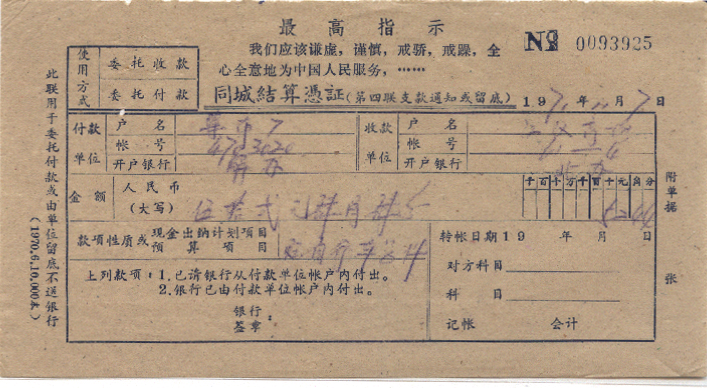 最高指示
我们应该谦虚，谨慎，戒骄，戒躁，全
心全意地为中国人民服务，……
№ 0093925
使用方式
委托收款
委托付款
同城结算憑証(第四联支款通知或留底)
197 年 11月7日
付款单位
户名
帐号
4703020
开户银行
收款单位
户名
帐号
开户银行
金额
人民币
(大写)
伍拾弍元肆角肆分
千百十万千百十元角分
5244
款项性质或现金出纳计划项目
预算项目
转帐日期19 年 月 日
上列款项：1.已请银行从付款单位帐户内付出。
2.银行已由付款单位帐户内付出。
银行
签章：
对方科目
科目
记帐 会计
附单据
张
此联用于委托付款或由单位留底不送银行
(1970.6.10,000本)